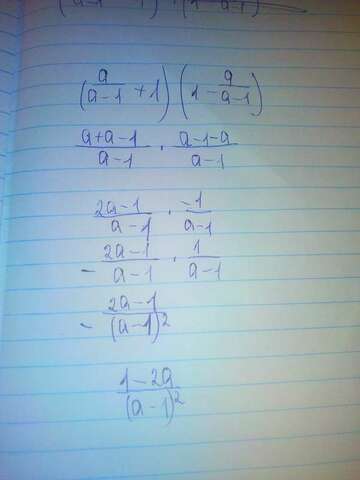 (a/(a-1) + 1) (1 - a/(a-1))
(a+a-1)/(a-1) · (a-1-a)/(a-1)
(2a-1)/(a-1) · (-1)/(a-1)
- (2a-1)/(a-1) · 1/(a-1)
- (2a-1)/(a-1)²
(1-2a)/(a-1)²